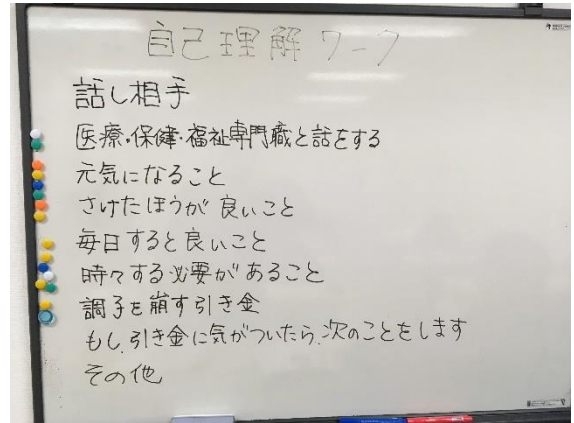 自己理解ワーク
話し相手
医療・保健・福祉専門職と話をする
元気になること
さけたほうが良いこと
毎日すると良いこと
時々する必要があること
調子を崩す引き金
もし、引き金に気がついたら、次のことをします
その他